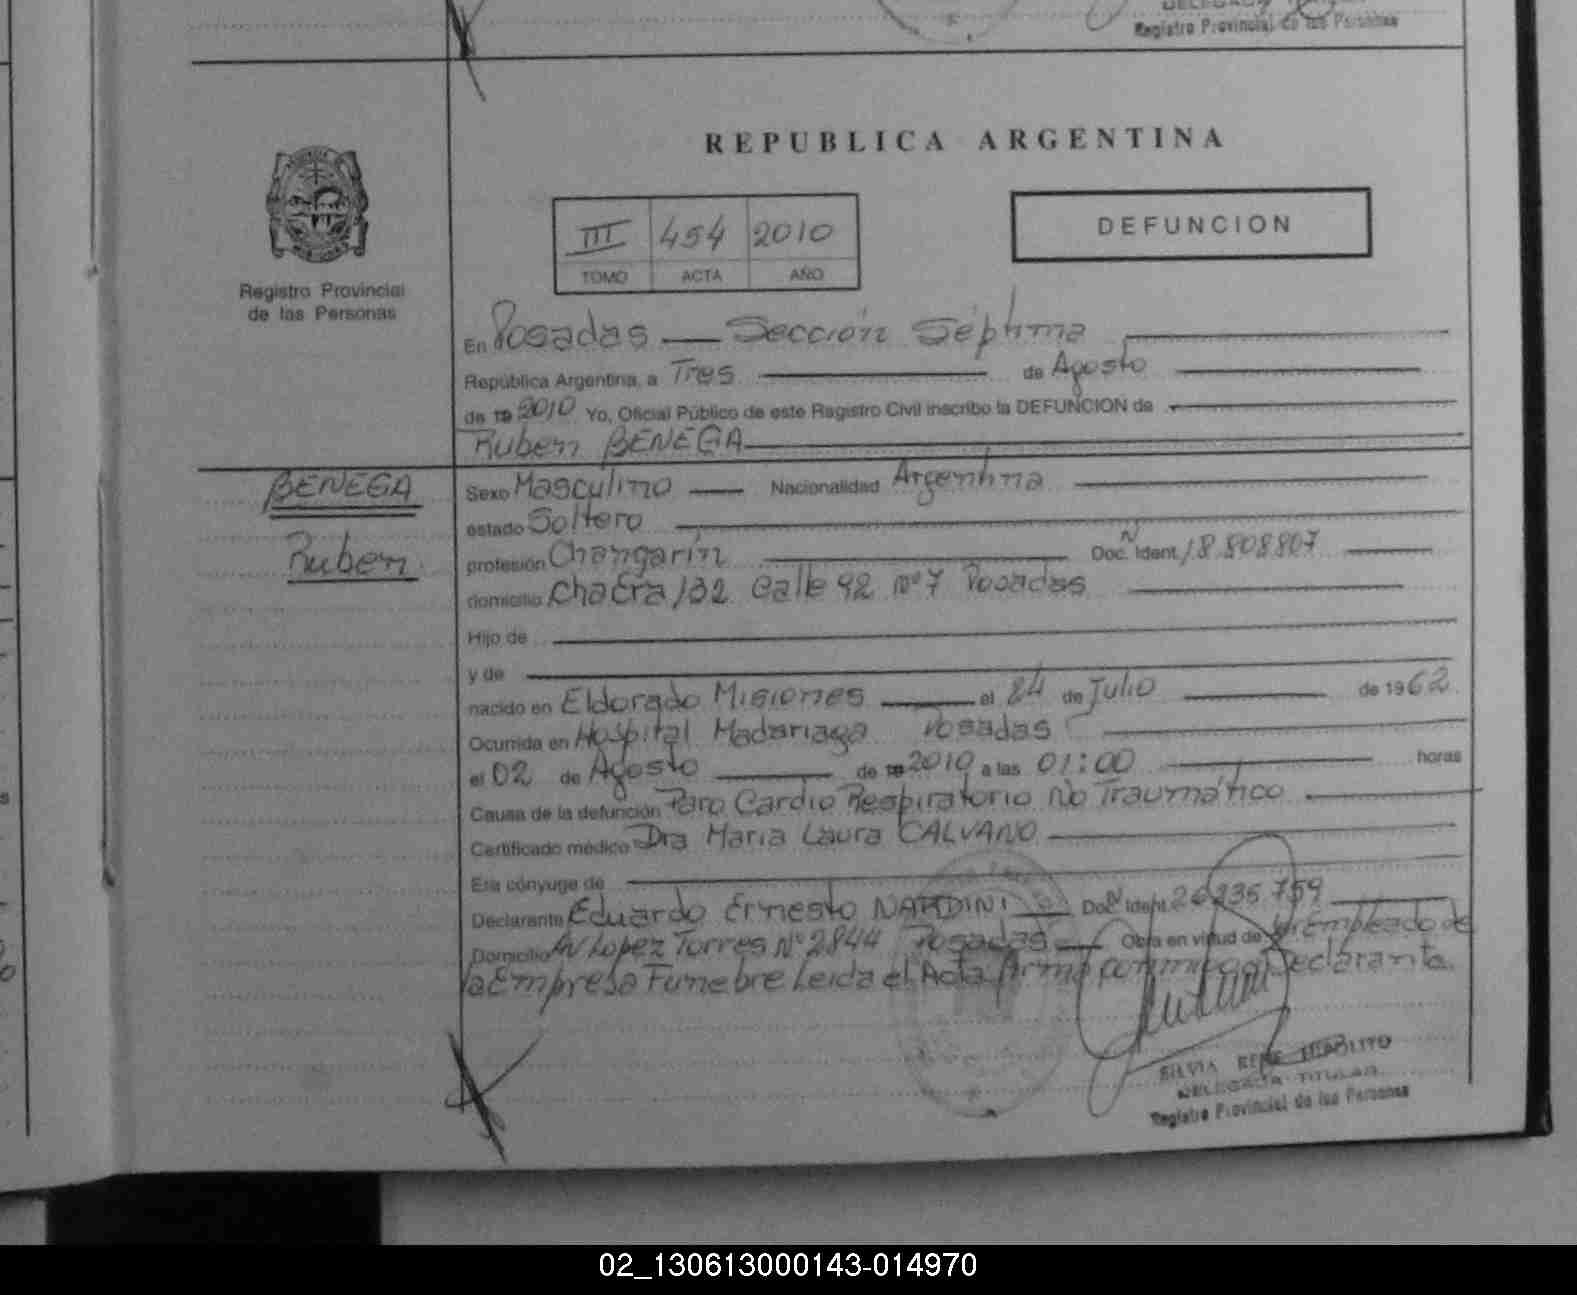 Registro Provincial de las Personas
REPUBLICA ARGENTINA
III 454 2010
TOMO ACTA AÑO
DEFUNCION
Registro Provincial
de las Personas
En Posadas — Sección Séptima
República Argentina, a Tres de Agosto
de 19 2010 Yo, Oficial Público de este Registro Civil inscribo la DEFUNCION de
Ruben BENEGA
BENEGA
Ruben
Sexo Masculino — Nacionalidad Argentina
estado Soltero
profesión Changarin Doc. Ident. N 18.808807
domicilio Chacra 132 Calle 92 Nº 7 Posadas
Hijo de
y de
nacido en Eldorado Misiones el 24 de Julio de 1962
Ocurrida en Hospital Madariaga Posadas
el 02 de Agosto de 19 2010 a las 01:00 horas
Causa de la defunción Paro Cardio Respiratorio No Traumático
Certificado médico Dra Maria Laura CALVANO
Era cónyuge de
Declarante Eduardo Ernesto NARDINI Doc. Ident. N 26.335.759
Domicilio Av Lopez Torres Nº 2844 Posadas — Obra en virtud de Empleado de
la Empresa Funebre Leida el Acta firma conmigo Declarante.
SILVIA RENE HIPOLITO
DELEGADA TITULAR
Registro Provincial de las Personas
02_130613000143-014970